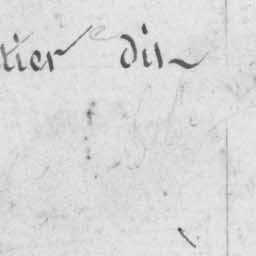 tier dit